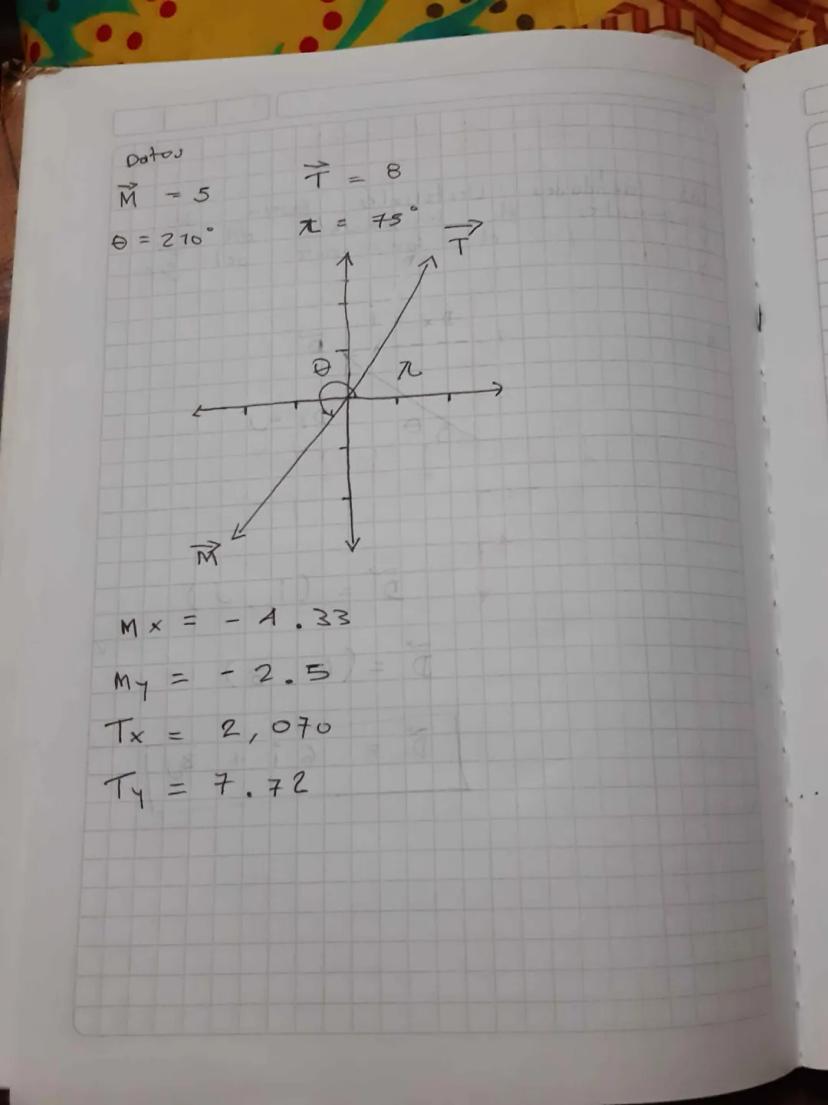 Datos
M⃗ = 5
T⃗ = 8
θ = 210°
π = 75°
T⃗
θ
π
M⃗
Mx = - 4.33
My = - 2.5
Tx = 2,070
Ty = 7.72